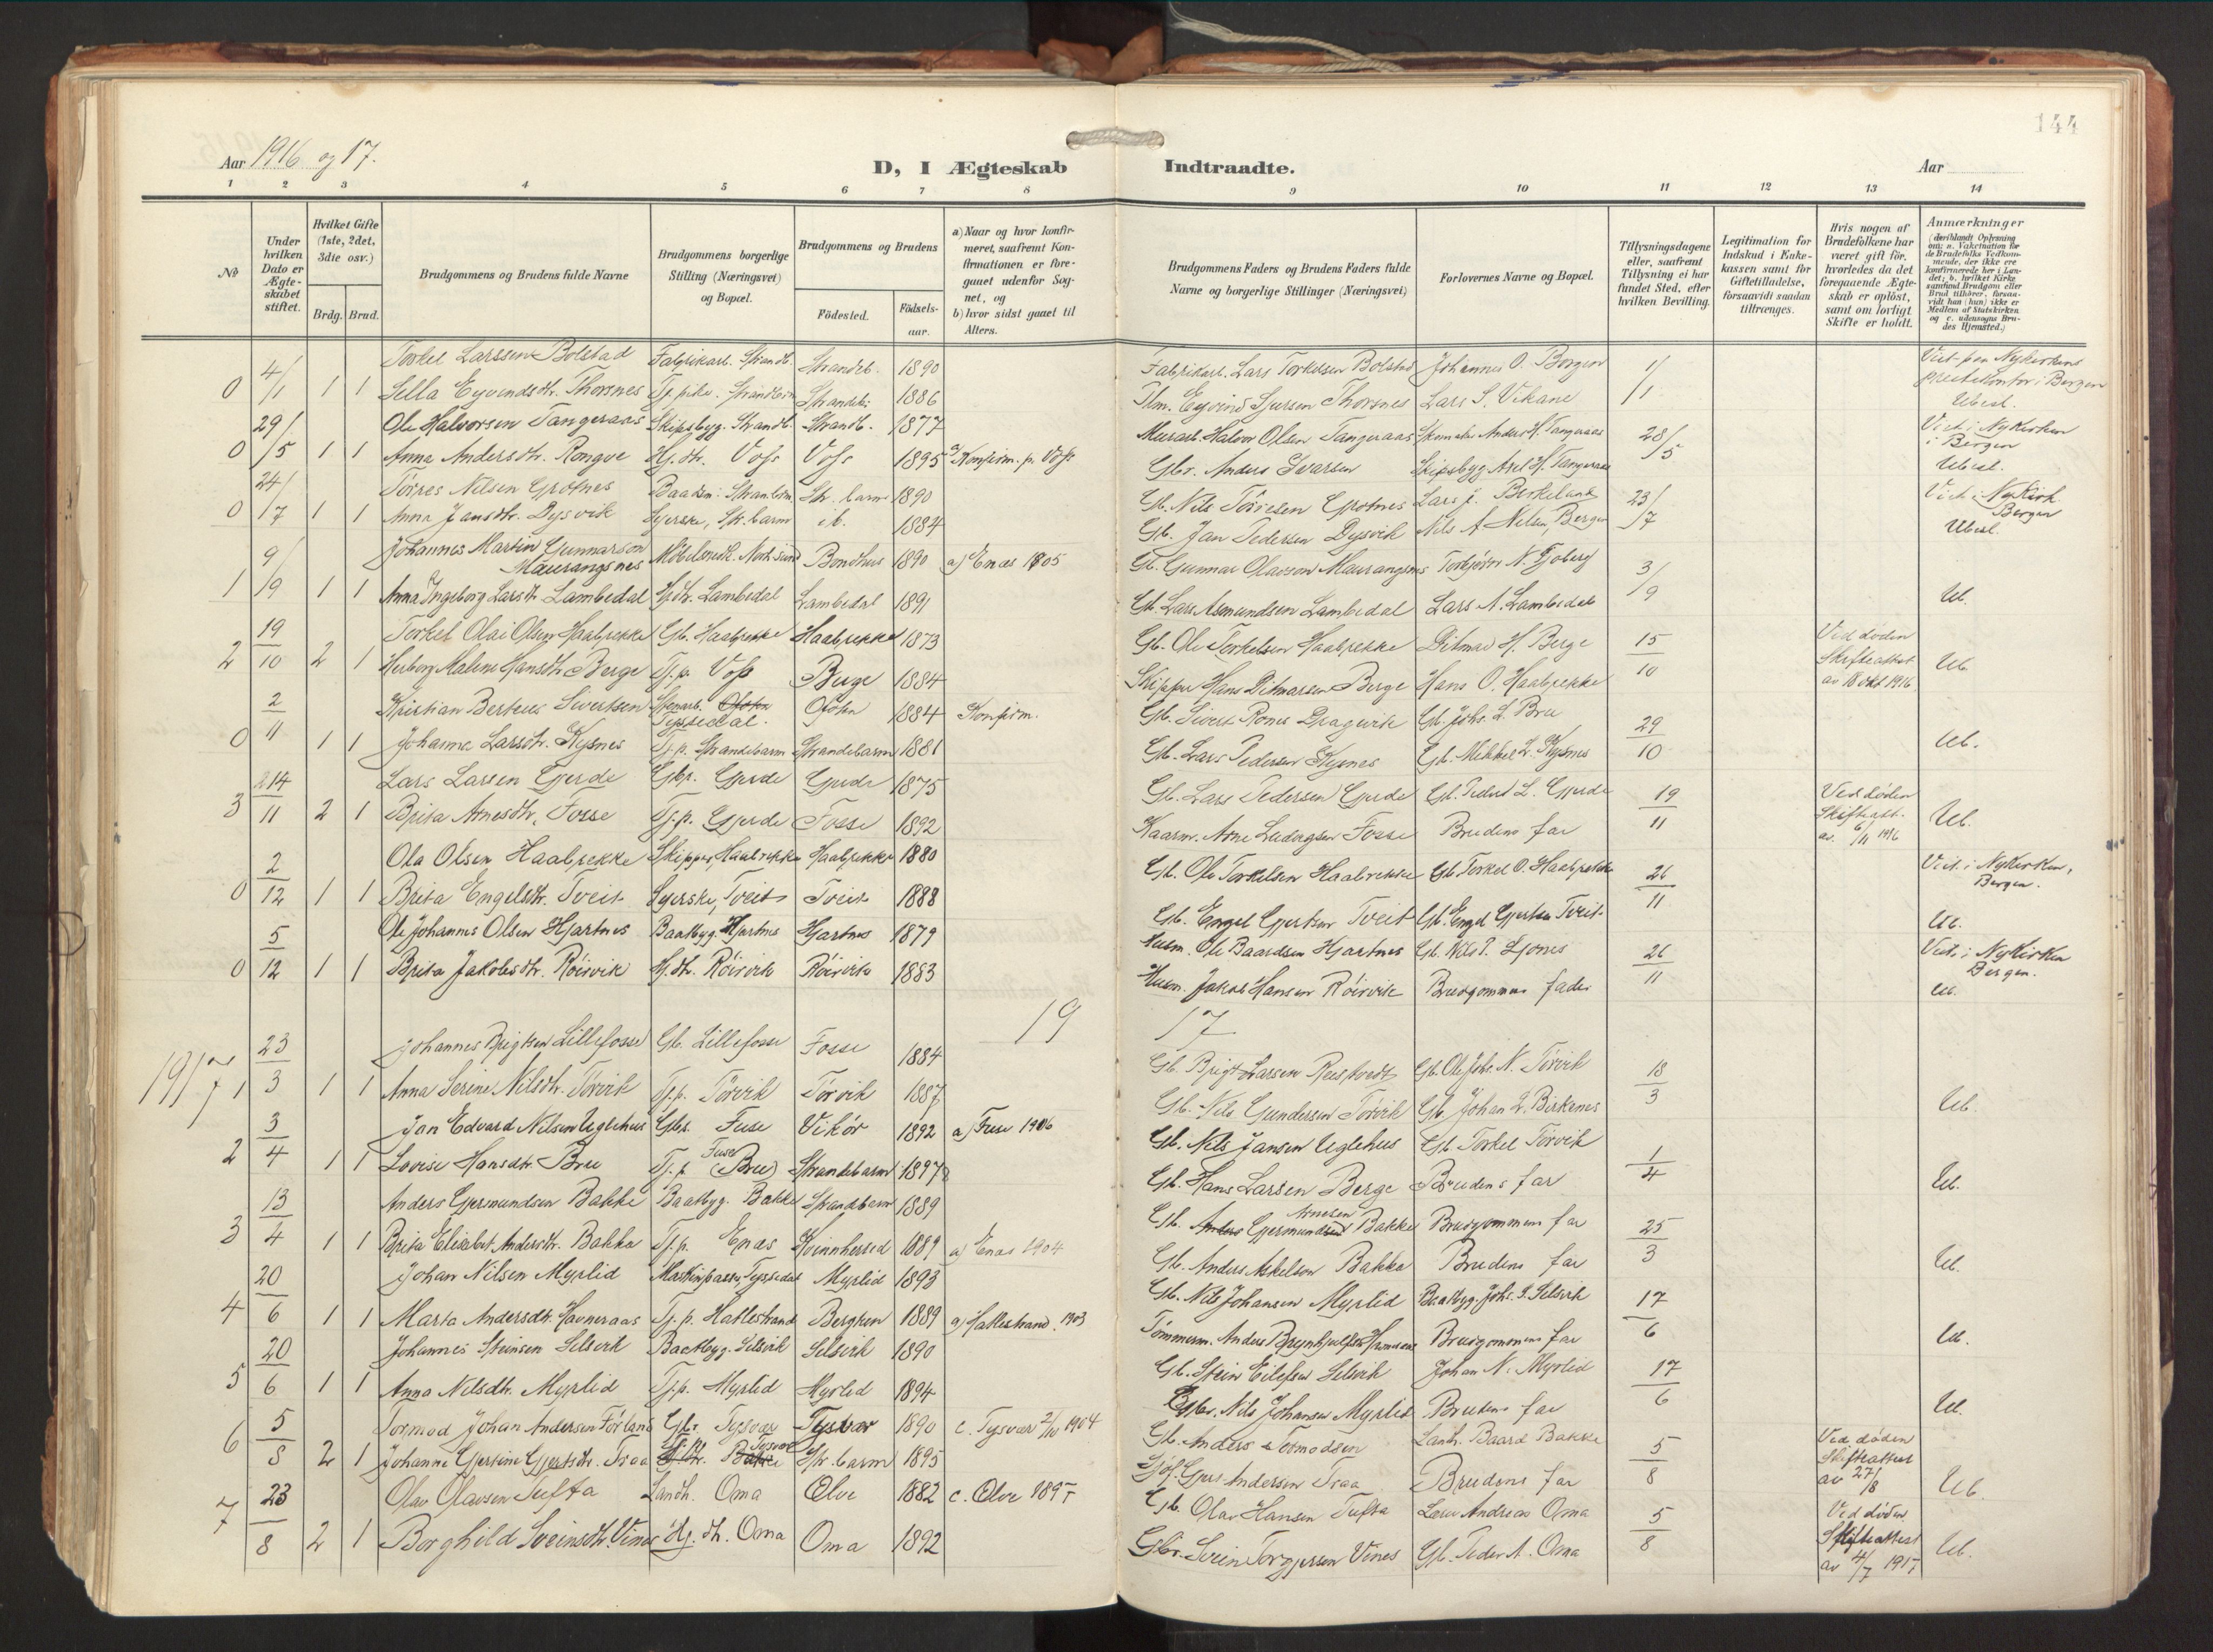 144
Aar 1916 og 17.
D, I Ægteskab Indtraadte.
Aar
1 2 3 4 5 6 7 8 9 10 11 12 13 14
No
Under hvilken Dato er Ægteskabet stiftet.
Hvilket Gifte (1ste, 2det, 3die osv.)
Brdg. Brud.
Brudgommens og Brudens fulde Navne
Brudgommens borgerlige Stilling (Næringsvei) og Bopæl.
Brudgommens og Brudens
Födested.
Födselsaar.
a) Naar og hvor konfirmeret, saafremt Konfirmationen er foregaaet udenfor Sognet, og
b) hvor sidst gaaet til Alters.
Brudgommens Faders og Brudens Faders fulde Navne og borgerlige Stillinger (Næringsvei)
Forlovernes Navne og Bopæl.
Tillysningsdagene eller, saafremt Tillysning ei har fundet Sted, efter hvilken Bevilling.
Legitimation for Indskud i Enkekassen samt for Giftetilladelse, forsaavidt saadan tiltrænges.
Hvis nogen af Brudefolkene har været gift för, hvorledes da det foregaaende Ægteskab er oplöst, samt om lovligt Skifte er holdt.
Anmærkninger
(deriblandt Oplysning om: a. Vakcination for de Brudefolks Vedkommende, der ikke ere konfirmerede her i Landet; b. hvilket Kirkesamfund Brudgom eller Brud tilhörer, forsaavidt han (hun) ikke er Medlem af Statskirken og c. udensogns Brudes Hjemsted.)
4/1 Torkel Larssen Bolstad Fabrikarb. Strandb. Strandeb. 1890 Fabrikarb. Lars Torkelsen Bolstad Johannes O. Bergen 1/1 Viet paa Nykirkens prestekontor i Bergen
0 1 1 Sella Eyvindsdtr. Thorsnes Tj. pike. Strandbarm Strandeb. 1886 Tlm. Eyvind Sjursen Thorsnes Lars S. Vikane Ubesl.
29/5 Ole Halvorsen Tangeraas Skipsbyg. Strandb. Strandb. 1877 Murarb. Halvor Olsen Tangeraas Anders H. Tangeraas 28/5 Viet i Nykirken i Bergen
0 1 1 Anna Andersdtr. Rongve Hj. dtr. Voss Voss 1895 a) Konfirm. p. Voss Gbr. Anders Ivarsen Skipsbyg Axel H. Tangeraas Ubesl.
24/7 Törres Nilsen Grotnes Str. barm 1890 Gb. Nils Törresen Grotnes Lars J. Birkeland 23/7 Viet i Nykirk. Bergen
0 1 1 Anna Jansdtr. Dysvik Syerske, Str. barm ib. 1884 Gb. Jan Pedersen Dysvik Nils A Nilsen, Bergen Ubesl.
9/9 Johannes Martin Gunnarson Maurangsnes Möbelsnedk. Nordhsund Bondhus 1890 a) Enæs 1905 Gb. Gunnar Olavson Maurangsnes Torbjörn N. Gjöberg 3/9
1 1 1 Anna Ingeborg Larsdtr Lambedal Hj. dtr. Lambedal Lambedal 1891 Gb. Lars Asmundsen Lambedal Lars A. Lambedal Ub.
19/10 Torkel Olai Olsen Haabrekke Gb. Haabrekke Haabrekke 1873 Gb. Ole Torkelsen Haabrekke Ditmar H. Berge 15/10 Ved döden Skifteattest av 18 okt 1916
2 2 1 Herborg Malene Hansdtr. Berge Tj. p. Voss Berge 1884 Skipper Hans Ditmarsen Berge Hans O. Haabrekke Ub.
2/11 Kristian Berteus Sivertsen Ofoten Tyssedal. Ofoten 1884 Konfirm. Gb. Sivert Rones Dragevik Gb. Johs. L. Bru 29/10
0 1 1 Johanna Larsdtr. Kysnes Tj. p. Strandebarm Strandebarm 1881 Gb. Lars Pedersen Kysnes Gb. Mikkel L. Kysnes Ub.
14/11 Lars Larsen Gjerde Gbr. Gjerde Gjerde 1875 Gb. Lars Pedersen Gjerde Gb. Peder L. Gjerde 19/11 Ved döden Skifteatt. av 6/11 1916
3 2 1 Brita Arnesdtr. Fosse Tj. p. Gjerde Fosse 1892 Kaarm. Arne Ludvigsen Fosse Brudens far Ub.
2/12 Ola Olsen Haabrekke Skipper, Haabrekke Haabrekke 1880 Gb. Ole Torkelsen Haabrekke Gb Torkel O. Haabrekke 26/11 Viet i Nykirken, Bergen.
0 1 1 Brita Engelsdtr. Tveit Syerske, Tveit Tveit 1888 Gb. Engel Gjertsen Tveit Gb. Engel Gjertsen Tveit Ub.
5/12 Ole Johannes Olsen Hjartnes Baatbyg. Hjartnes Hjartnes 1879 Husm. Ole Baardsen Hjartnes Gb. Nils P. Ljones 26/11 Viet i Nykirken Bergen.
0 1 1 Brita Jakobsdtr. Röirvik Hj. dtr. Röirvik Röirvik 1883 Husm. Jakob Hansen Röirvik Brudgommens fader Ub.
19 17
1917
23/3 Johannes Brigtsen Lillefosse Gb. Lillefosse Fosse 1884 Gb. Brigt Larsen Gb. Ole Johs. N. Törvik 18/3
1 1 1 Anna Serine Nilsdtr. Törvik Tj. p. Törvik Törvik 1887 Gb. Nils Gundersen Törvik Gb Johan L. Birkenes Ub.
3/4 Jan Edvard Nilsen Uglehus Gbr. Fuse Vikör 1892 a) Fuse 1906 Gb. Nils Jansen Uglehus Gb Torkel Törvik 1/4
2 1 1 Lovise Hansdtr. Bru Tj. p. Fuse (Bru) Strandebarm 1897 Gb. Hans Larsen Berge Brudens far Ub.
13/4 Anders Gjermundsen Bakke Baatbyg. Bakke Strandbarm 1889 Gb. Anders Gjermundsen Arnesen Bakke Brudgommens far 25/3
3 1 1 Brita Elisabet Andersdtr. Bakka Tj. p. Enæs Kvinnhersed 1889 a) Enæs 1904 Gb. Anders Askelson Bakka Brudens far Ub.
20/6 Johan Nilsen Myrlid Maskinpasser, Tyssedal Myrlid 1893 Gb. Nils Johansen Myrlid Baatbyg. Johs. S. Selsvik 17/6
4 1 1 Marta Andersdtr. Havneraas Tj. p. Hatlestrand Bergken 1889 a) Hatlestrand. 1903 Tömmerm. Anders Brynhjulfsen Brudgommens far Ub.
20/6 Johannes Steinsen Selsvik Baatbyg. Selsvik Selsvik 1890 Gb. Stein Eilefsen Selsvik Johan N. Myrlid 17/6
5 1 1 Anna Nilsdtr. Myrlid Tj. p. Myrlid Myrlid 1894 Gbr. Nils Johansen Myrlid Brudens far Ub.
6 5/8 Tormod Johan Andersen Förland Gbr. Tysvær Tysvær 1890 c. Tysvær 2/10 1904 Gb. Anders Tormodsen Landh. Baard Bakke 5/8 Ved döden Skifteattest av 27/8
2 1 Johanne Gjertine Gjertsdtr. Traa Tysvær Str. barm 1895 Gjert Andersen Traa Brudens far Ub.
23/8 Olav Olavsen Tufta Landh. Oma Ölve 1882 c. Ölve 1897 Gb. Olav Hansen Tufta Andreas Oma 5/8 Ved döden Skifteattest av 4/7 1917
7 2 1 Borghild Sveinsdtr. Vines Hj. dtr. Oma Oma 1892 Gbr. Svein Torgersen Vines Gb. Peder A. Oma Ub.